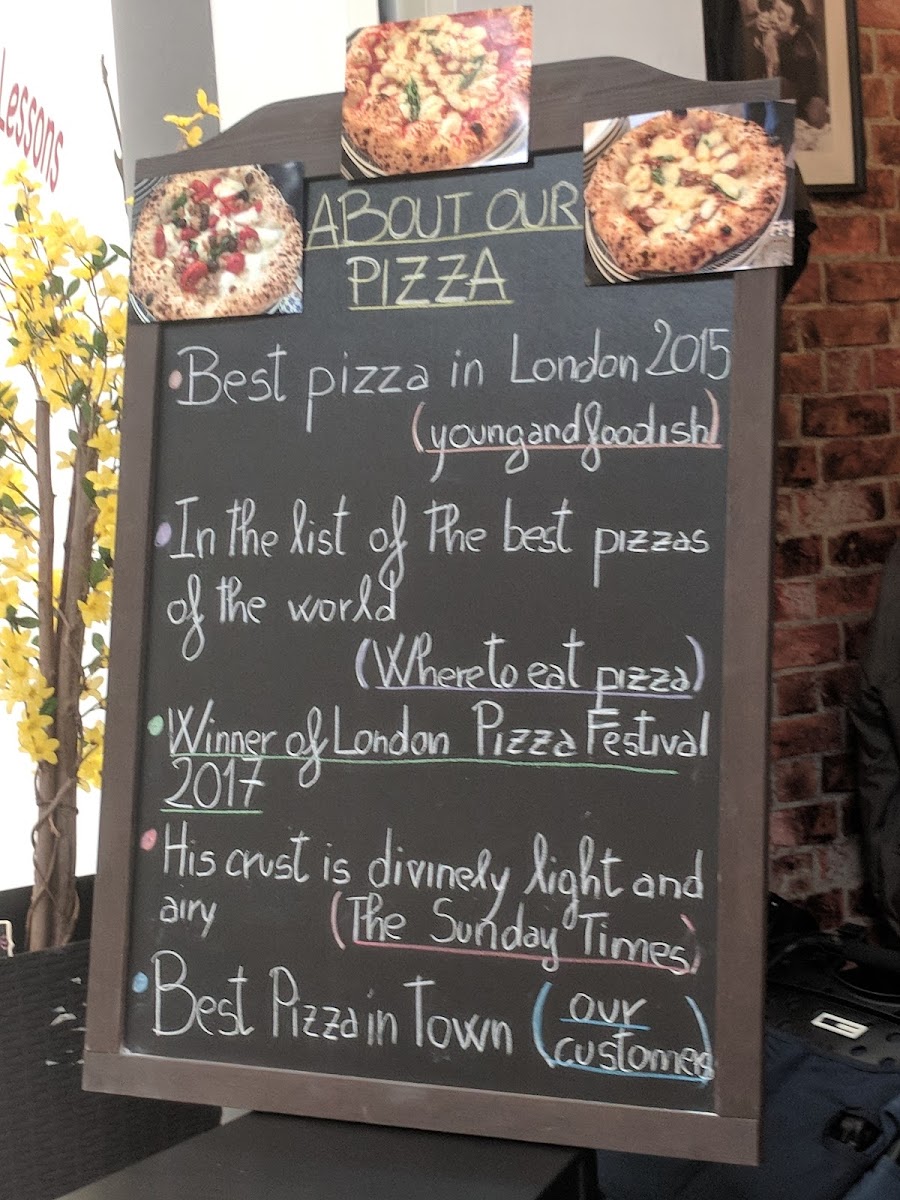 Lessons
ABOUT OUR
PIZZA
Best pizza in London 2015
(youngandfoodish)
In the list of the best pizzas
of the world
(Where to eat pizza)
Winner of London Pizza Festival
2017
His crust is divinely light and
airy (The Sunday Times)
Best Pizza in Town (our
customers)